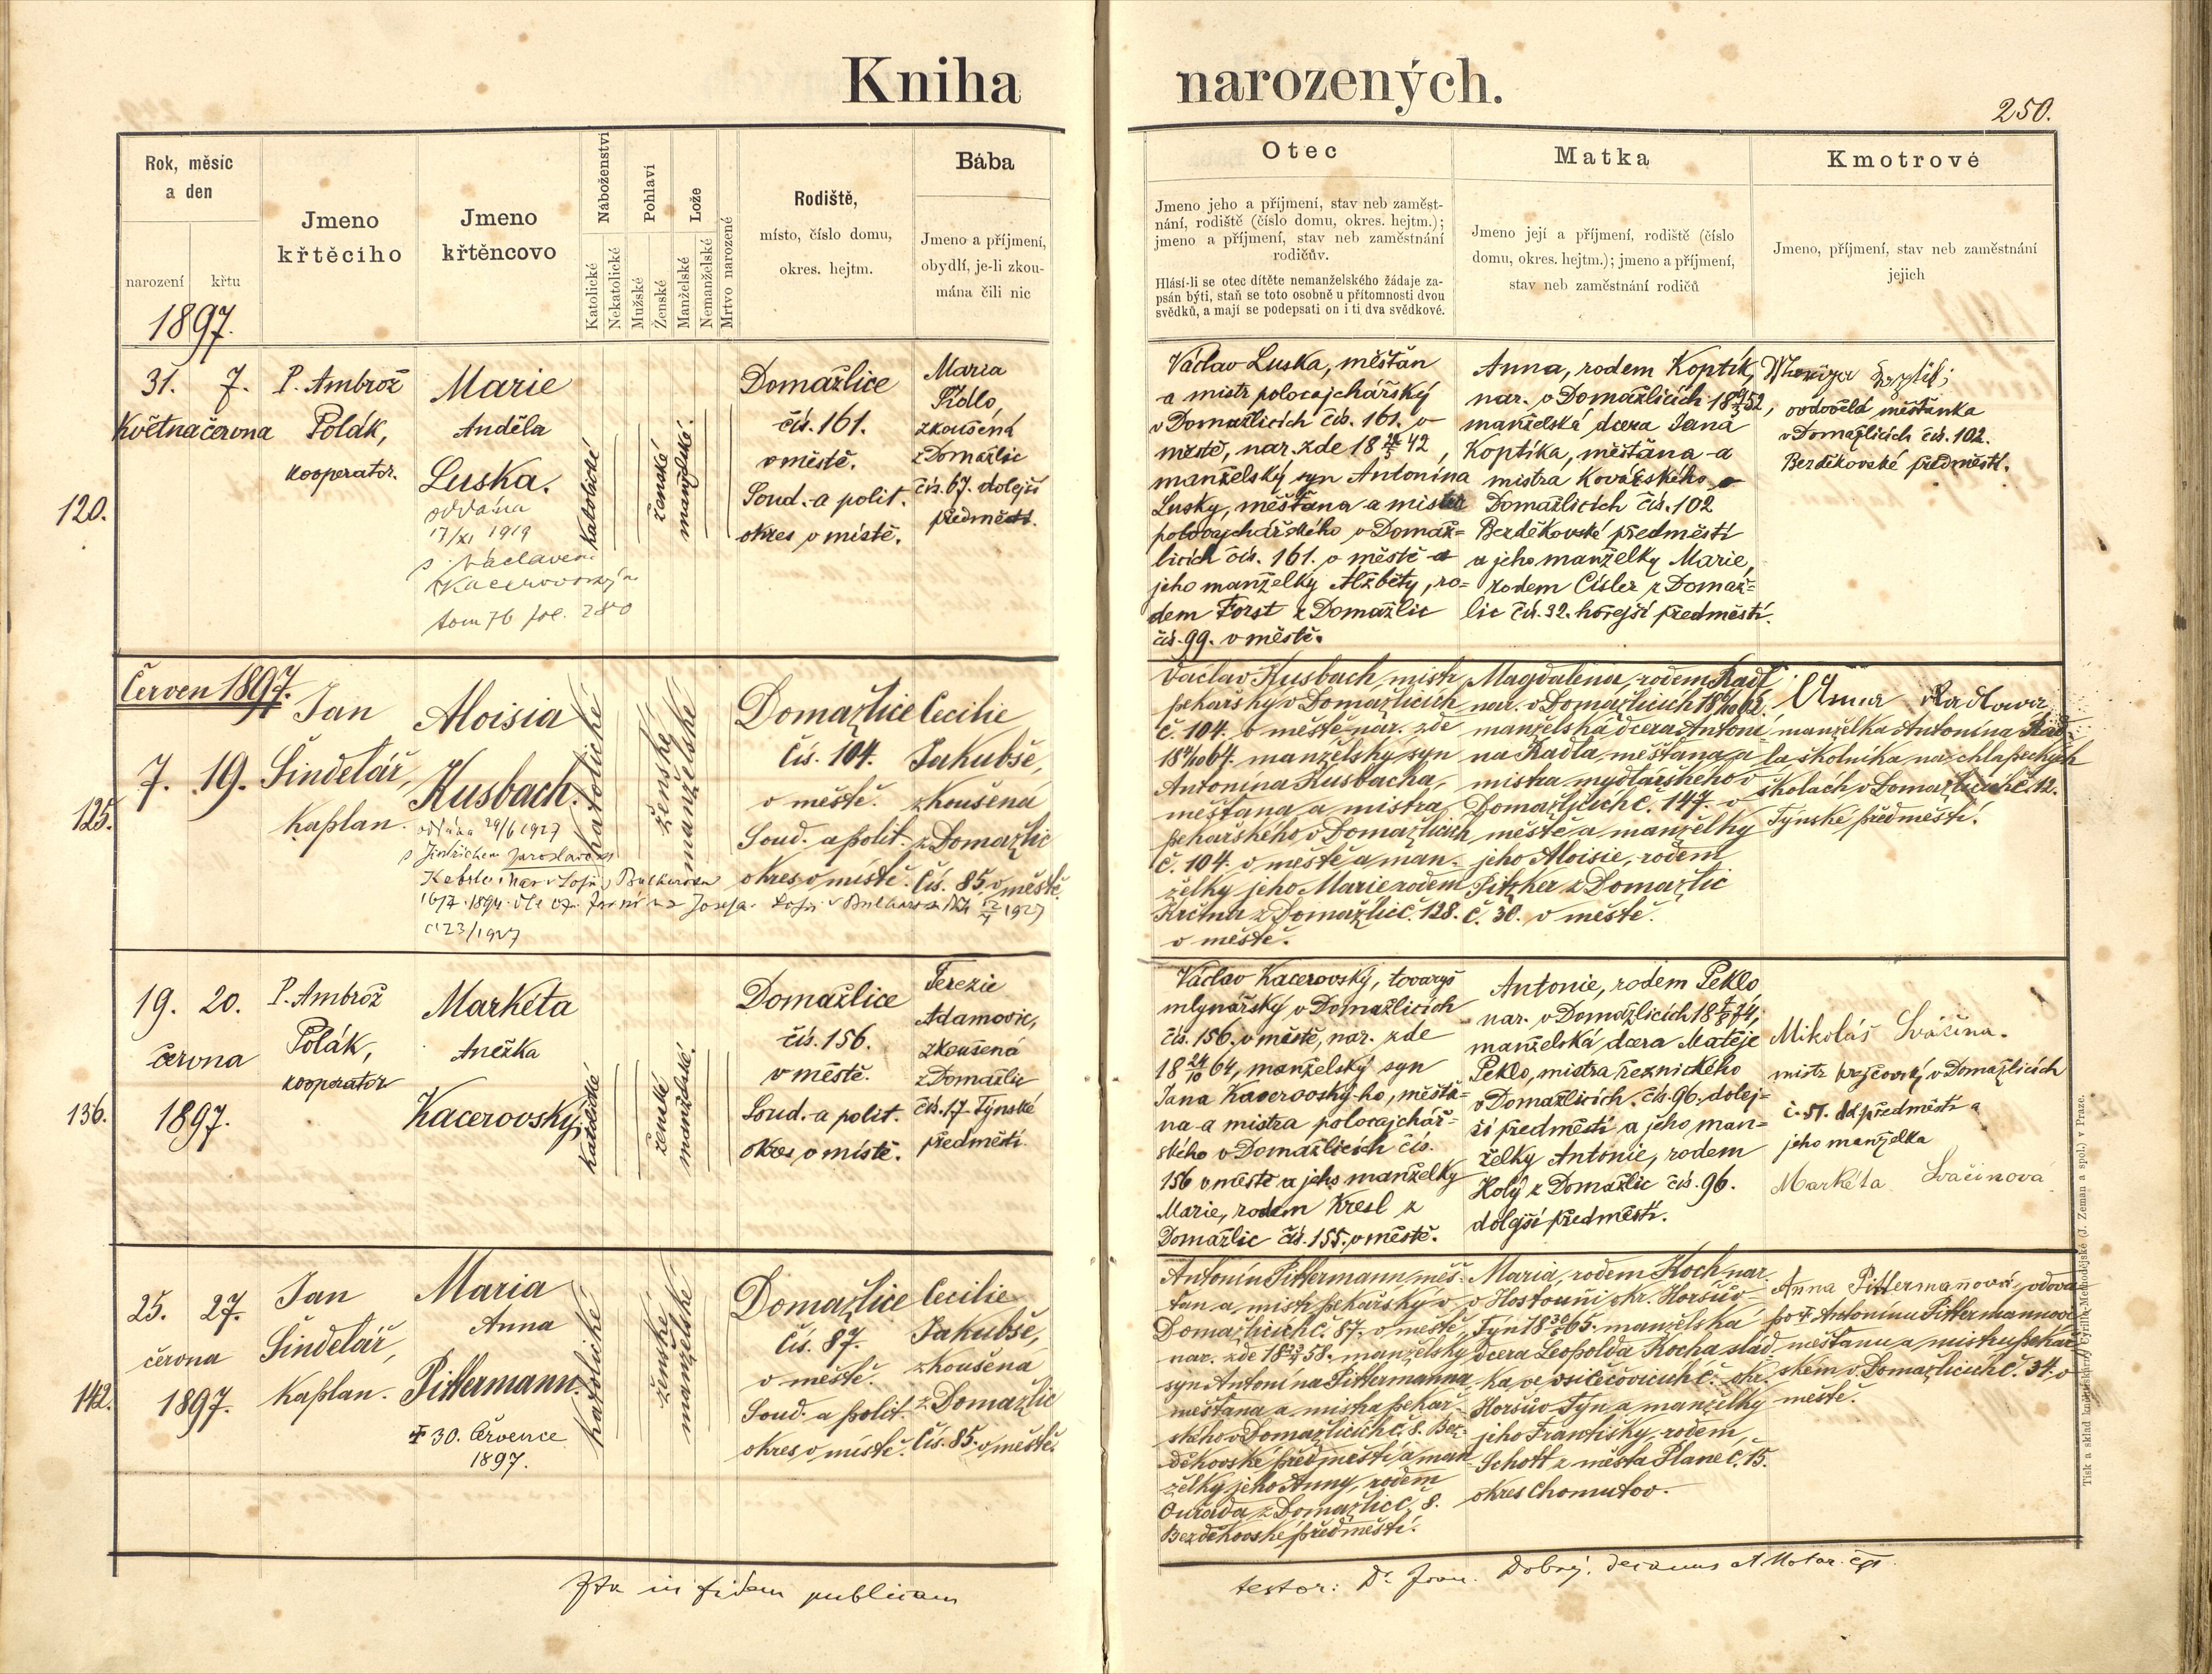 Kniha narozených.
250.
Rok, měsíc
a den
narození
křtu
1897.
Jmeno
křtěcího
Jmeno
křtěncovo
Náboženství
Katolické
Nekatolické
Pohlaví
Mužské
Ženské
Lože
Manželské
Nemanželské
Mrtvo narozené
Rodiště,
místo, číslo domu,
okres. hejtm.
Bába
Jmeno a příjmení,
obydlí, je-li zkou-
mána čili nic
Otec
Jmeno jeho a příjmení, stav neb zaměst-
nání, rodiště (číslo domu, okres. hejtm.);
jmeno a příjmení, stav neb zaměstnání
rodičův.
Hlásí-li se otec dítěte nemanželského žádaje za-
psán býti, staň se toto osobně u přítomnosti dvou
svědků, a mají se podepsati on i ti dva svědkové.
Matka
Jmeno její a příjmení, rodiště (číslo
domu, okres. hejtm.); jmeno a příjmení,
stav neb zaměstnání rodičů
Kmotrové
Jmeno, příjmení, stav neb zaměstnání
jejich
120.
31. 7.
Května června
P. Ambrož
Polák,
kooperator.
Marie
Anděla
Luska.
oddána
17/XI 1919
s Václavem
Kacerovským
tom 76 fol. 280
katolické
ženské
manželské.
Domažlice
čís. 161.
v městě.
Soud. a polit.
okres v místě.
Maria
Pídlo,
zkoušená
z Domažlic
čís. 67. dolejší
předměstí.
Václav Luska, měšťan
a mistr polocajchářský
v Domažlicích čís. 161. v
městě, nar. zde 18 42,
manželský syn Antonína
Lusky, měšťana a mistra
polocajchářského v Domaž-
licích čís. 161. v městě a
jeho manželky Alžběty, ro-
dem Forst z Domažlic
čís. 99. v městě.
Anna, rodem Koptík,
nar. v Domažlicích 18 52,
manželská dcera Jana
Koptíka, měšťana a
mistra kovářského v
Domažlicích čís. 102
Bezděkovské předměstí
a jeho manželky Marie,
rodem Císler z Domaž-
lic čís. 32. hořejší předměstí.
ovdovělá měšťanka
v Domažlicích čís. 102.
Bezděkovské předměstí.
Červen 1897.
125.
7. 19.
Jan
Šindelář,
kaplan.
Aloisia
Kusbach.
oddána 29/6 1927
s Jindřichem Jaroslavem
1927
katolické
ženské
manželské
Domažlice
čís. 104.
v městě.
Soud. a polit.
okres v místě.
Cecilie
Jakubše,
zkoušená
z Domažlic
čís. 85. v městě.
Václav Kusbach, mistr
pekařský v Domažlicích
č. 104. v městě nar. zde
64. manželský syn
Antonína Kusbacha,
měšťana a mistra
pekařského v Domažlicích
č. 104. v městě a man-
želky jeho Marie rodem
Krčma z Domažlic č. 128.
v městě.
Magdalena, rodem Radl
nar. v Domažlicích 62.
manželská dcera Antoni-
na Radla, měšťana a
mistra mydlářského v
Domažlicích č. 147. v
městě a manželky
jeho Aloisie, rodem
Pitzker z Domažlic
č. 30. v městě.
Anna Radlova
manželka Antonína Rad-
la školníka na chlapeckých
školách v Domažlicích č. 12.
Týnské předměstí.
136.
19. 20.
června
1897.
P. Ambrož
Polák,
kooperator
Markéta
Anežka
Kacerovský.
katolické
ženské
manželské.
Domažlice
čís. 156.
v městě.
Soud. a polit.
okres v místě.
Terezie
Adamovic,
zkoušená
z Domažlic
čís. 17 Týnské
předměstí.
Václav Kacerovský, tovaryš
mlynářský v Domažlicích
čís. 156. v městě, nar. zde
18 24/10 64, manželský syn
Jana Kacerovský-ho, měšťa-
na a mistra polocajchář-
ského v Domažlicích čís.
156 v městě a jeho manželky
Marie, rodem Kresl z
Domažlic čís. 155. v městě.
Antonie, rodem Peklo
nar. v Domažlicích 18 74,
manželská dcera Matěje
Peklo, mistra řeznického
v Domažlicích čís. 96. dolej-
ší předměstí a jeho man-
želky Antonie, rodem
Holý z Domažlic čís. 96.
dolejší předměstí.
Mikoláš Svačina.
mistr krejčovský v Domažlicích
č. 51. dol. předměstí a
jeho manželka
Markéta Svačinová
142.
25. 27.
června
1897.
Jan
Šindelář,
kaplan.
Maria
Anna
Pittermann.
† 30. července
1897.
katolické
ženské
manželské
Domažlice
čís. 87.
v městě.
Soud. a polit.
okres v místě.
Cecilie
Jakubše,
zkoušená
z Domažlic
čís. 85. v městě.
Antonín Pittermann, měš-
ťan a mistr pekařský v
Domažlicích č. 87. v městě,
nar. zde 18 58. manželský
syn Antonína Pittermanna
měšťana a mistra pekař-
ského v Domažlicích č. 8. Bez-
děkovské předměstí a man-
želky jeho Anny, rodem
Ouřada z Domažlic č. 8.
Bezděkovské předměstí.
Maria, rodem Koch nar.
v Hostouni okr. Horšův
Týn 18 65. manželská
dcera Leopolda Kocha slád-
ka ve č. okr.
Horšův Týn a manželky
jeho Františky, rodem
Schott z města Plané č. 15.
okres Chomutov.
Anna Pittermanová vdova
po † Antonínu Pittermannovi
měšťanu a mistru pekař-
ském v Domažlicích č. 34. v
městě.
Ita in fidem publicam
testor: Dr. Fran. Dobrý, decanus et Notar. ep.
Tisk a sklad knihtiskárny Cyrillo-Methodějské (J. Zeman a spol.) v Praze.